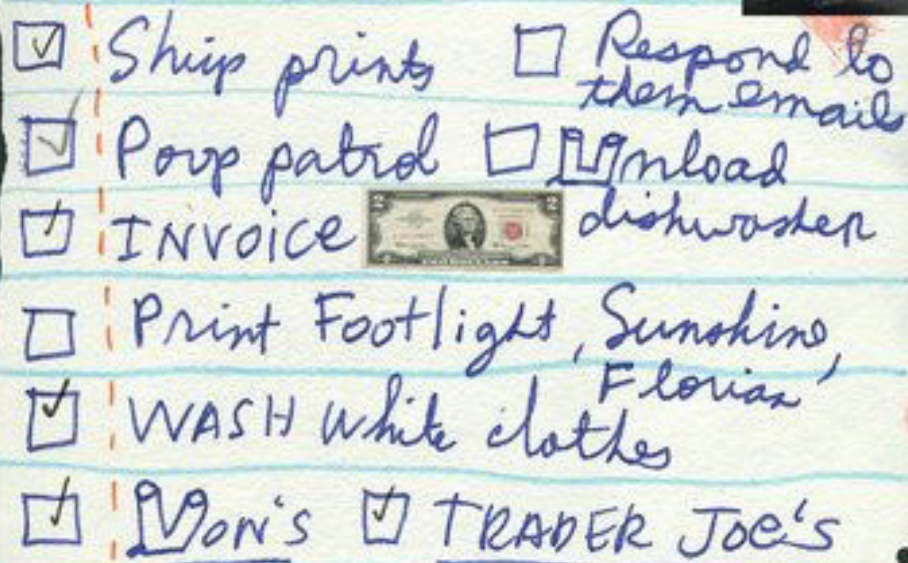 Ship prints
Respond to
them email
Poop patrol
Unload
dishwasher
INVOICE
2
Print Footlight, Sunshine,
Florian
WASH white clothes
Von's
TRADER Joe's